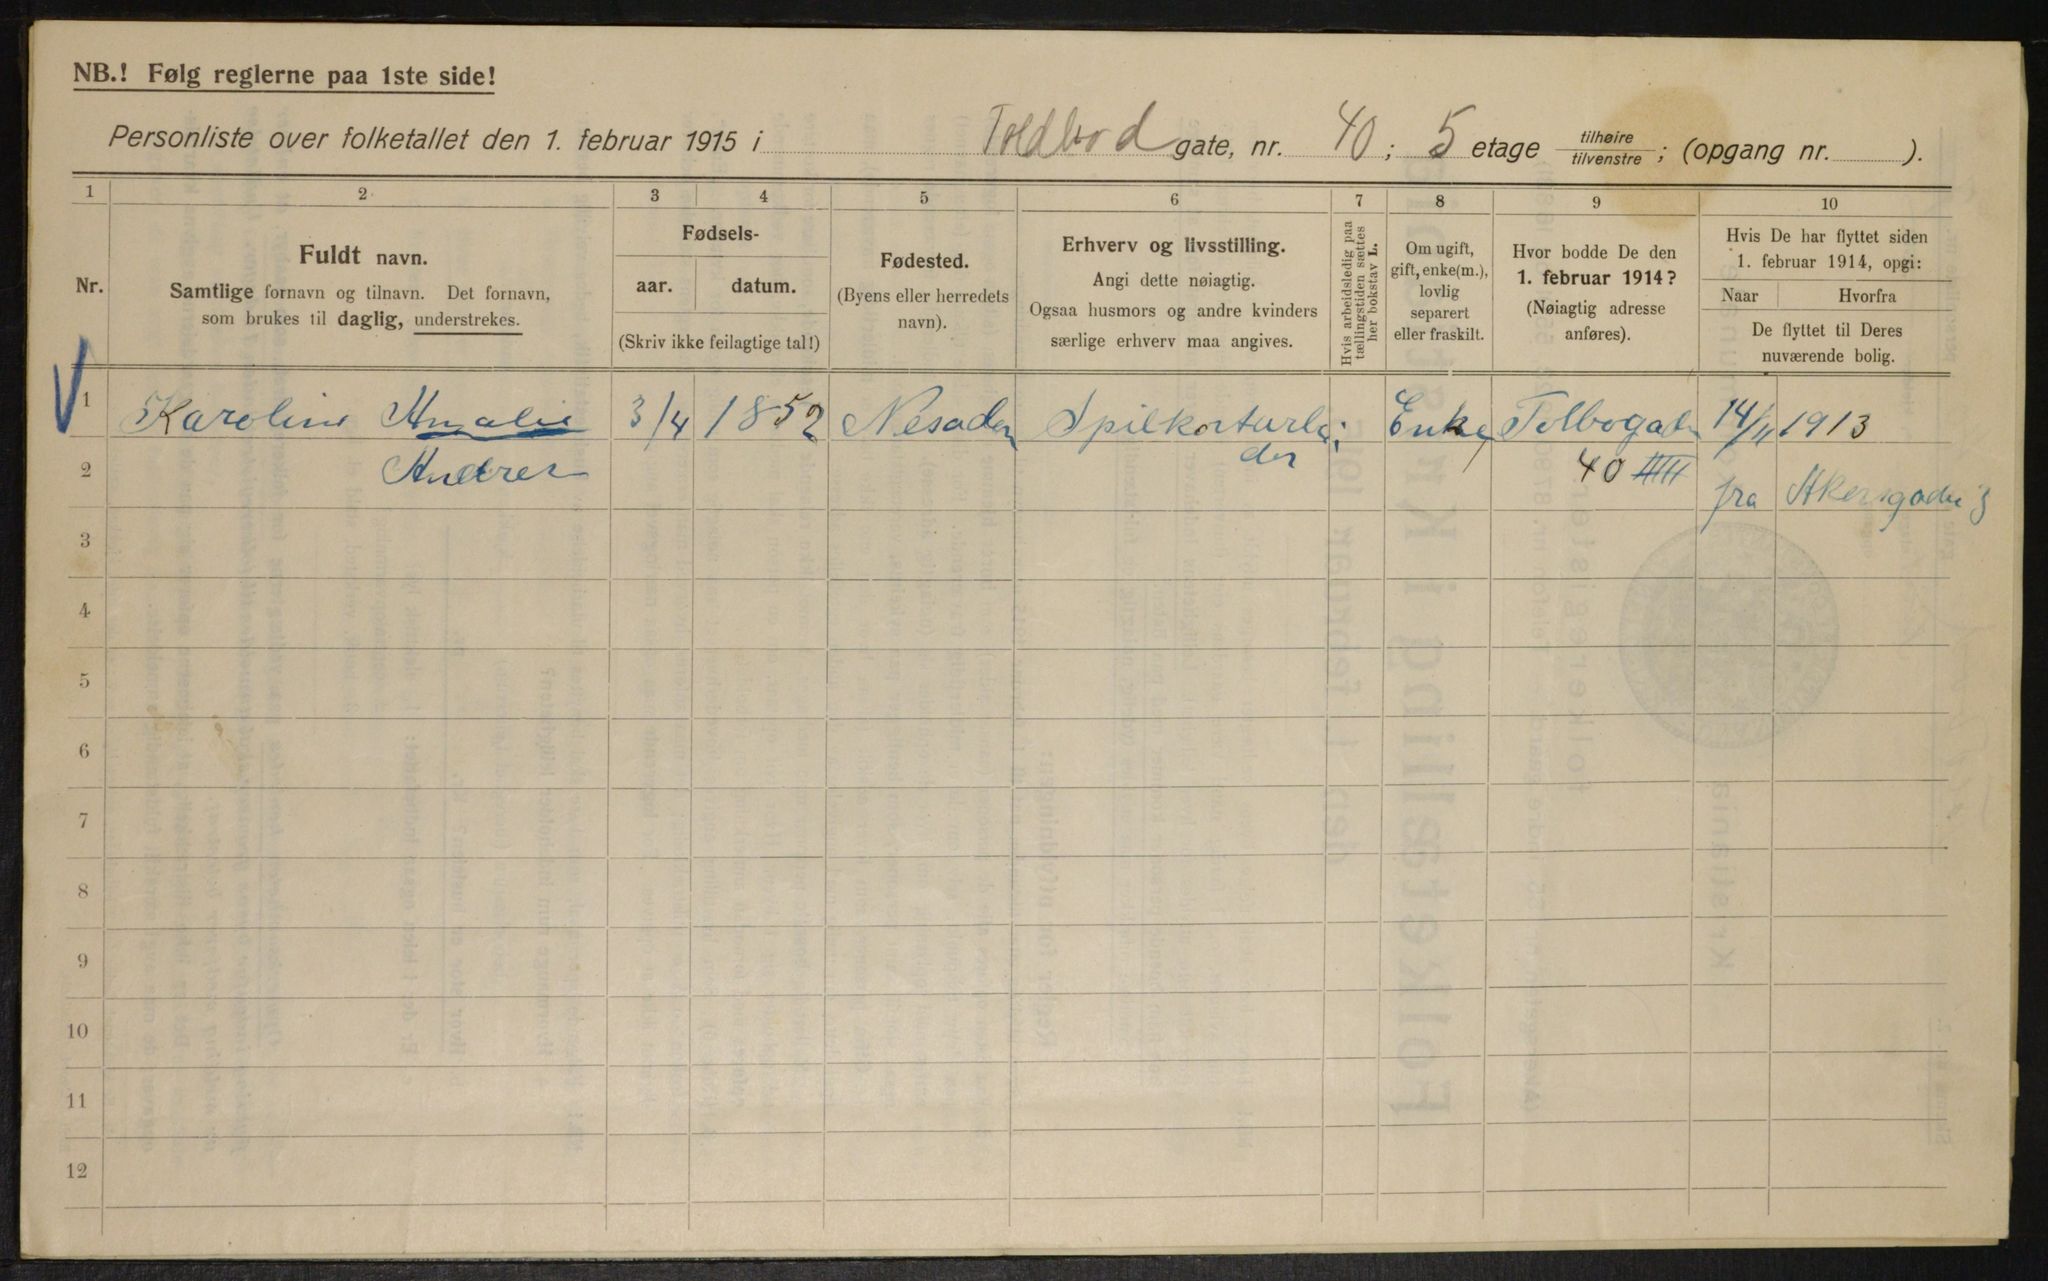 NB.! Følg reglerne paa 1ste side!
Personliste over folketallet den 1. februar 1915 i Toldbod gate, nr. 40; 5 etage tilhøire/tilvenstre; (opgang nr. ).
1 2 3 4 5 6 7 8 9 10
Nr.
Fuldt navn.
Samtlige fornavn og tilnavn. Det fornavn,
som brukes til daglig, understrekes.
Fødsels-
aar. datum.
(Skriv ikke feilagtige tal!)
Fødested.
(Byens eller herredets
navn).
Erhverv og livsstilling.
Angi dette nøiagtig.
Ogsaa husmors og andre kvinders
særlige erhverv maa angives.
Hvis arbeidsledig paa
tællingstiden sættes
her bokstav L.
Om ugift,
gift, enke(m.),
lovlig
separert
eller fraskilt.
Hvor bodde De den
1. februar 1914?
(Nøiagtig adresse
anføres).
Hvis De har flyttet siden
1. februar 1914, opgi:
Naar Hvorfra
De flyttet til Deres
nuværende bolig.
1 Karoline Amalie 3/4 1852 Nesoden Enke Tolbogaden 14/11 1913
2 40 IIIII fra Akersgaden 3
3
4
5
6
7
8
9
10
11
12